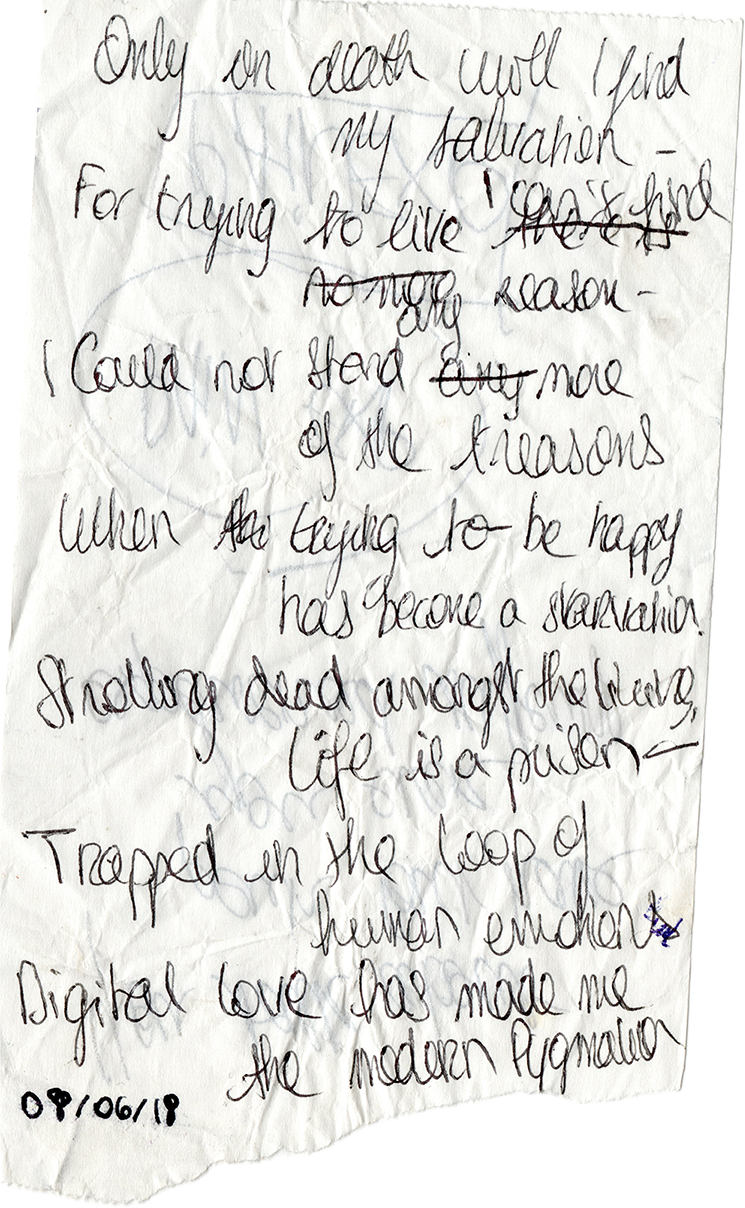 Only in death will I find
my salvation –
For trying to live I can't find
there is
no more any reason –
I Could not stand any more
of the treasons
When the trying to be happy
has become a starvation.
Strolling dead amongst the living,
Life is a prison –
Trapped in the loop of
human emotion
Digital love has made me
the modern Pygmalion